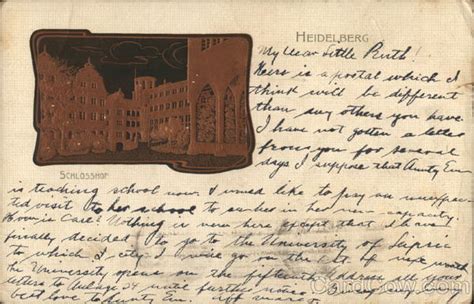 HEIDELBERG
My Dear Little Ruth!
Here is a postal which I
think will be different
than any others you have
I have not gotten a letter
from you for several
days I suppose that Aunty Em
SCHLOSSHOF
is teaching school now. I would like to pay an unexpected
visit to her school to see her in her new capacity.
How is Carl? Nothing is new here except that I have
finally decided to go to the University of Leipsic
to which city I will go on the 1st of next
the University opens on the fifteenth Address all your
letters to until further notice
best love to Aunty Em.
CardCow.com